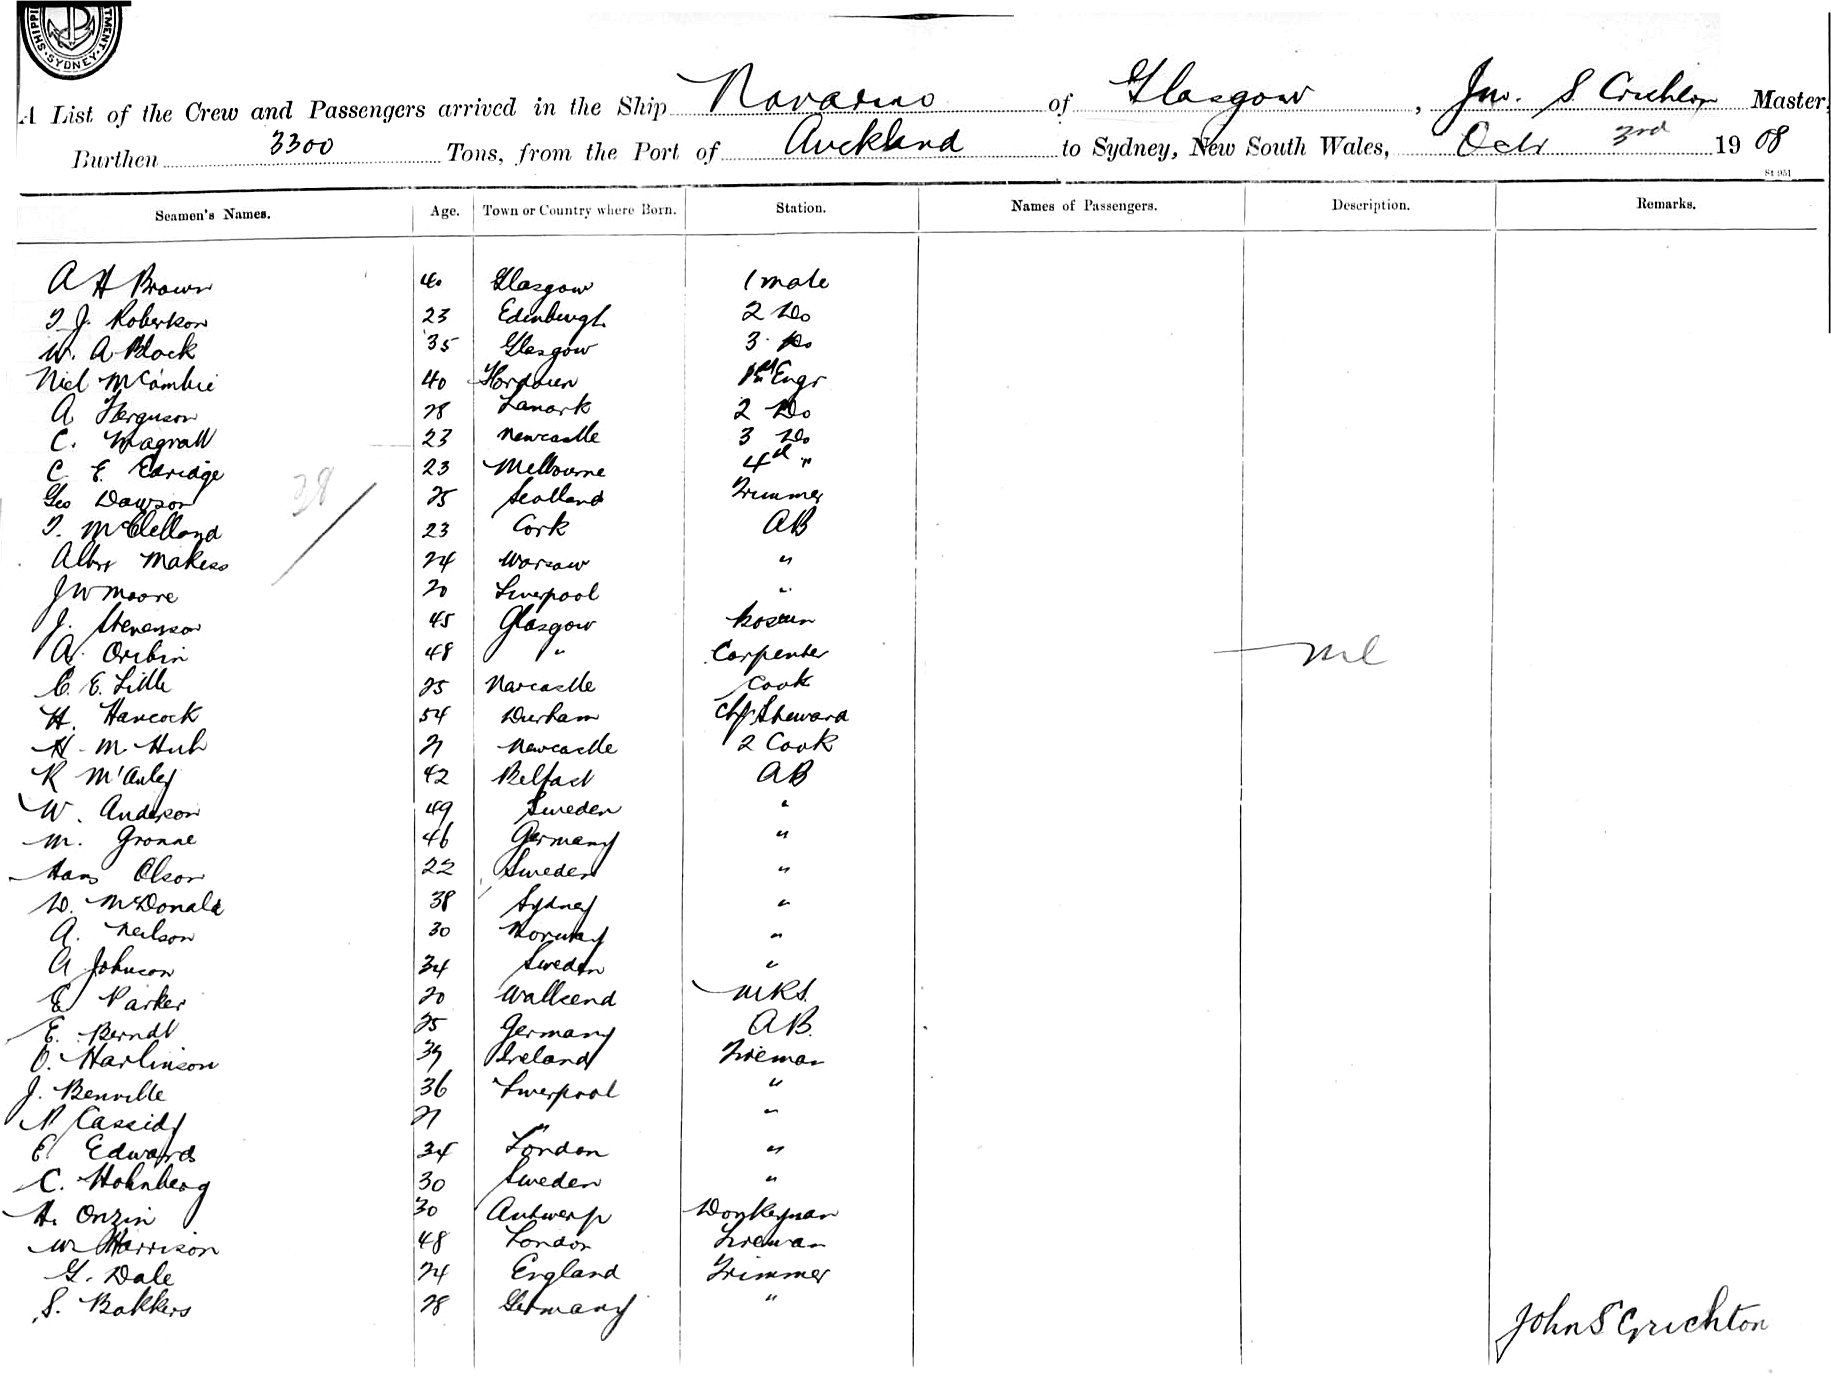 SHIPPI TMENT. SYDNEY
A List of the Crew and Passengers arrived in the Ship Navarino of Glasgow, Jno. S Crichton Master,
Burthen 3300 Tons, from the Port of Auckland to Sydney, New South Wales, Octr 3rd 1908
St 951
Seamen's Names. Age. Town or Country where Born. Station. Names of Passengers. Description. Remarks.
A H Brown 40 Glasgow 1 mate
T J. Robertson 23 Edinburgh 2 Do
W. A Block 35 Glasgow 3 Do
Niel McCombie 40 1st Engr
A Ferguson 28 Lanark 2 Do
C. Magratt 23 Newcastle 3 Do
C. E. Edridge 23 Melbourne 4th "
Geo Dawson 25 Scotland Trimmer
T. McClelland 23 Cork AB
Albr Makess 24 Warsaw "
J W Moore 20 Liverpool "
J. Stevenson 45 Glasgow Bosun
A. Oribin 48 " Carpenter
C. E. Little 25 Narcastle Cook
H. Hancock 54 Durham Chf Steward
H M 21 Newcastle 2 Cook
R M'Auley 42 Belfast AB
W. Anderson 49 Sweden "
M. Gronne 46 Germany "
Hans Olson 22 Sweden "
W. McDonald 38 Sydney "
A. Neilson 30 Norway "
A Johnson 34 Sweden "
E Parker 20 Wallsend MRS.
E. Berndt 25 Germany AB.
O. Harlinson 39 Ireland Fireman
J. Benville 36 Liverpool "
P Cassidy 21 " "
E Edwards 34 London "
C. Hohnberg 30 Sweden "
H. Onzin 30 Antwerp Donkeyman
W Harrison 48 London Fireman
G. Dale 24 England Trimmer
S. Bakkers 28 Germany "
38
Nil
John S Crichton